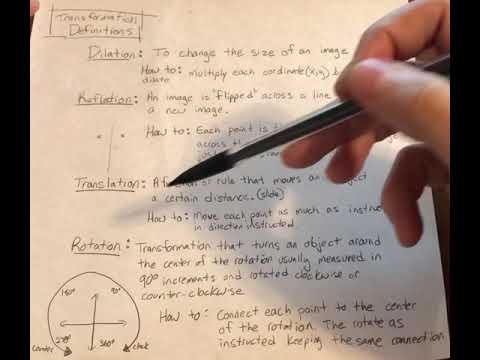 Transformation
Definitions
Dilation: To change the size of an image
How to: multiply each coordinate (x,y)
dilate
Reflection: An image is "flipped" across a line
a new image.
How to: Each point is
across
Translation: A or rule that moves an
a certain distance. (slide)
How to: Move each point as much as
in direction instructed
Rotation: Transformation that turns an object around
the center of the rotation usually measured in
90° increments and rotated clockwise or
counter-clockwise
How to: Connect each point to the center
of the rotation. The rotate as
instructed keeping the same connection
180° 90°
270° 360°
counter clock